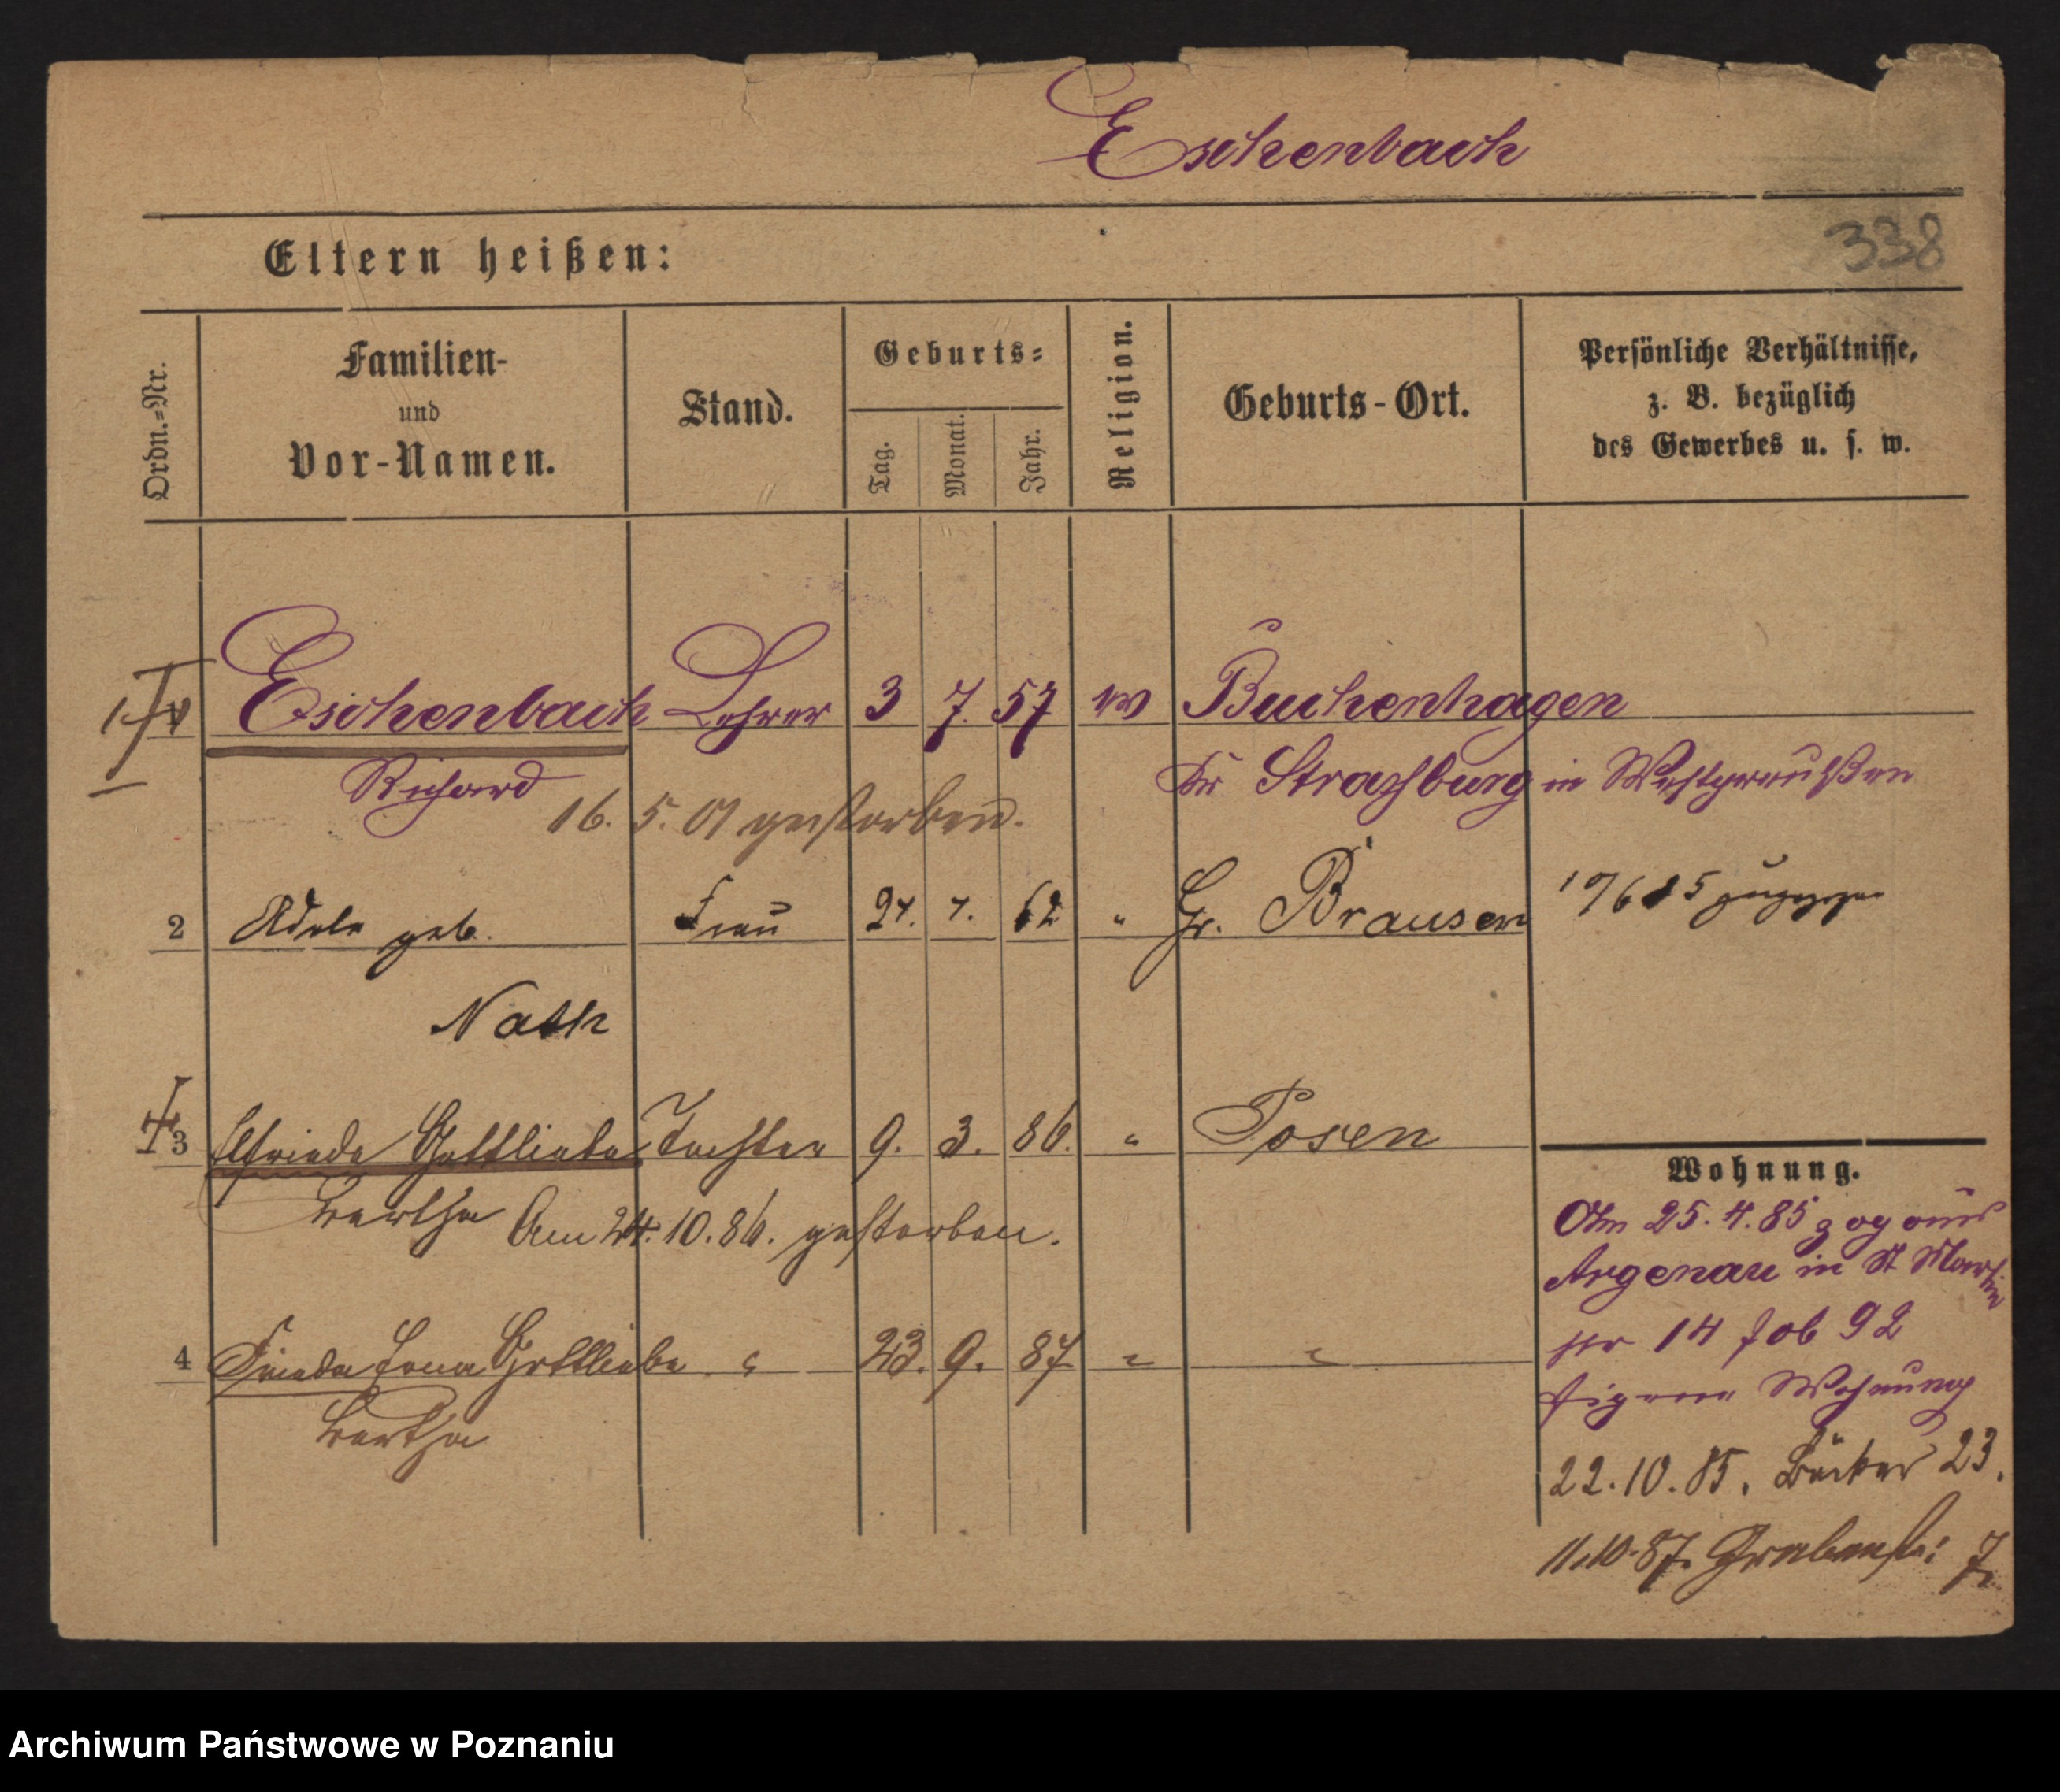 Eschenbach
Eltern heißen:
338
Ordn.=Nr.
Familien-
und
Vor-Namen.
Stand.
Geburts=
Tag.
Monat.
Jahr.
Religion.
Geburts-Ort.
Persönliche Verhältnisse,
z. B. bezüglich
des Gewerbes u. s. w.
1 Eschenbach Lehrer 3 7. 57 Buchenhagen
Richard Kr Strasburg in Westpreußen
16. 5. 01 gestorben.
2 Adele geb. Frau 24. 7. 62 " Gr. Brausen
Nath
3 Elfriede Gottliebe Tochter 9. 3. 86. " Posen
Bertha Am 24. 10. 86. gestorben.
4 Frieda Gottliebe " 23. 9. 87 " "
Bertha
Wohnung.
Am 25. 4. 85 zog aus
Argenau in St Martin
14 92
Eigene Wohnung
22. 10. 85. Bäcker 23.
11.10.87. Grabenstr: 7.
Archiwum Państwowe w Poznaniu